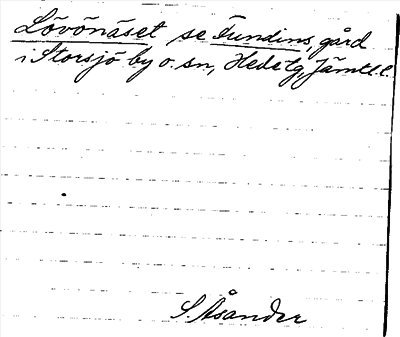 Lövönäset se Fundins, gård
i Storsjö by o. sn, Hede tg, Jämtl. l.
S. Åsander